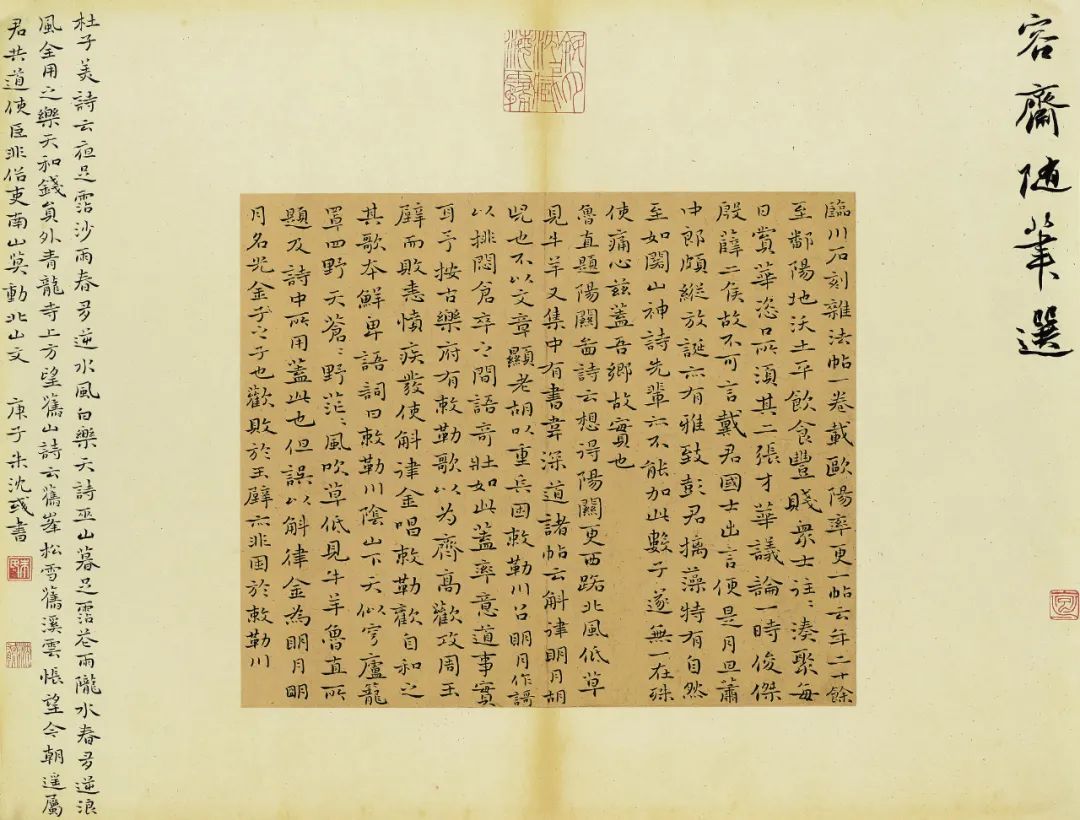 容齋随筆選
臨川石刻雜法帖一卷載歐陽率更一帖云年二十餘
至鄱陽地沃土平飲食豐賤衆士往〻湊聚每
日賞華恣口所須其二張才華議論一時俊傑
殷薛二侯故不可言戴君國士出言便是月旦蕭
中郎頗縱放誕亦有雅致彭君摛藻特有自然
至如閣山神詩先輩亦不能加此數子遂無一在殊
使痛心兹蓋吾鄉故實也
魯直題陽關圖詩云想得陽關更西路北風低草
見牛羊又集中有書韋深道諸帖云斛律明月胡
兒也不以文章顯老胡以重兵困敕勒川召明月作謌
以排悶倉卒之間語奇壯如此蓋率意道事實
耳予按古樂府有敕勒歌以為齊高歡攻周玉
壁而敗恚憤疾發使斛律金唱敕勒歡自和之
其歌本鮮卑語詞曰敕勒川陰山下天似穹廬籠
罩四野天蒼〻野茫〻風吹草低見牛羊魯直所
題及詩中所用蓋此也但誤以斛律金為明月明
月名光金子之子也歡敗於玉壁亦非困於敕勒川
杜子美詩云夜足霑沙雨春多逆水風白樂天詩巫山暮足霑花雨隴水春多逆浪
風全用之樂天和錢員外青龍寺上方望舊山詩云舊峯松雪舊溪雲悵望今朝遥屬
君共道使臣非俗吏南山莫動北山文 庚子朱沈彧書